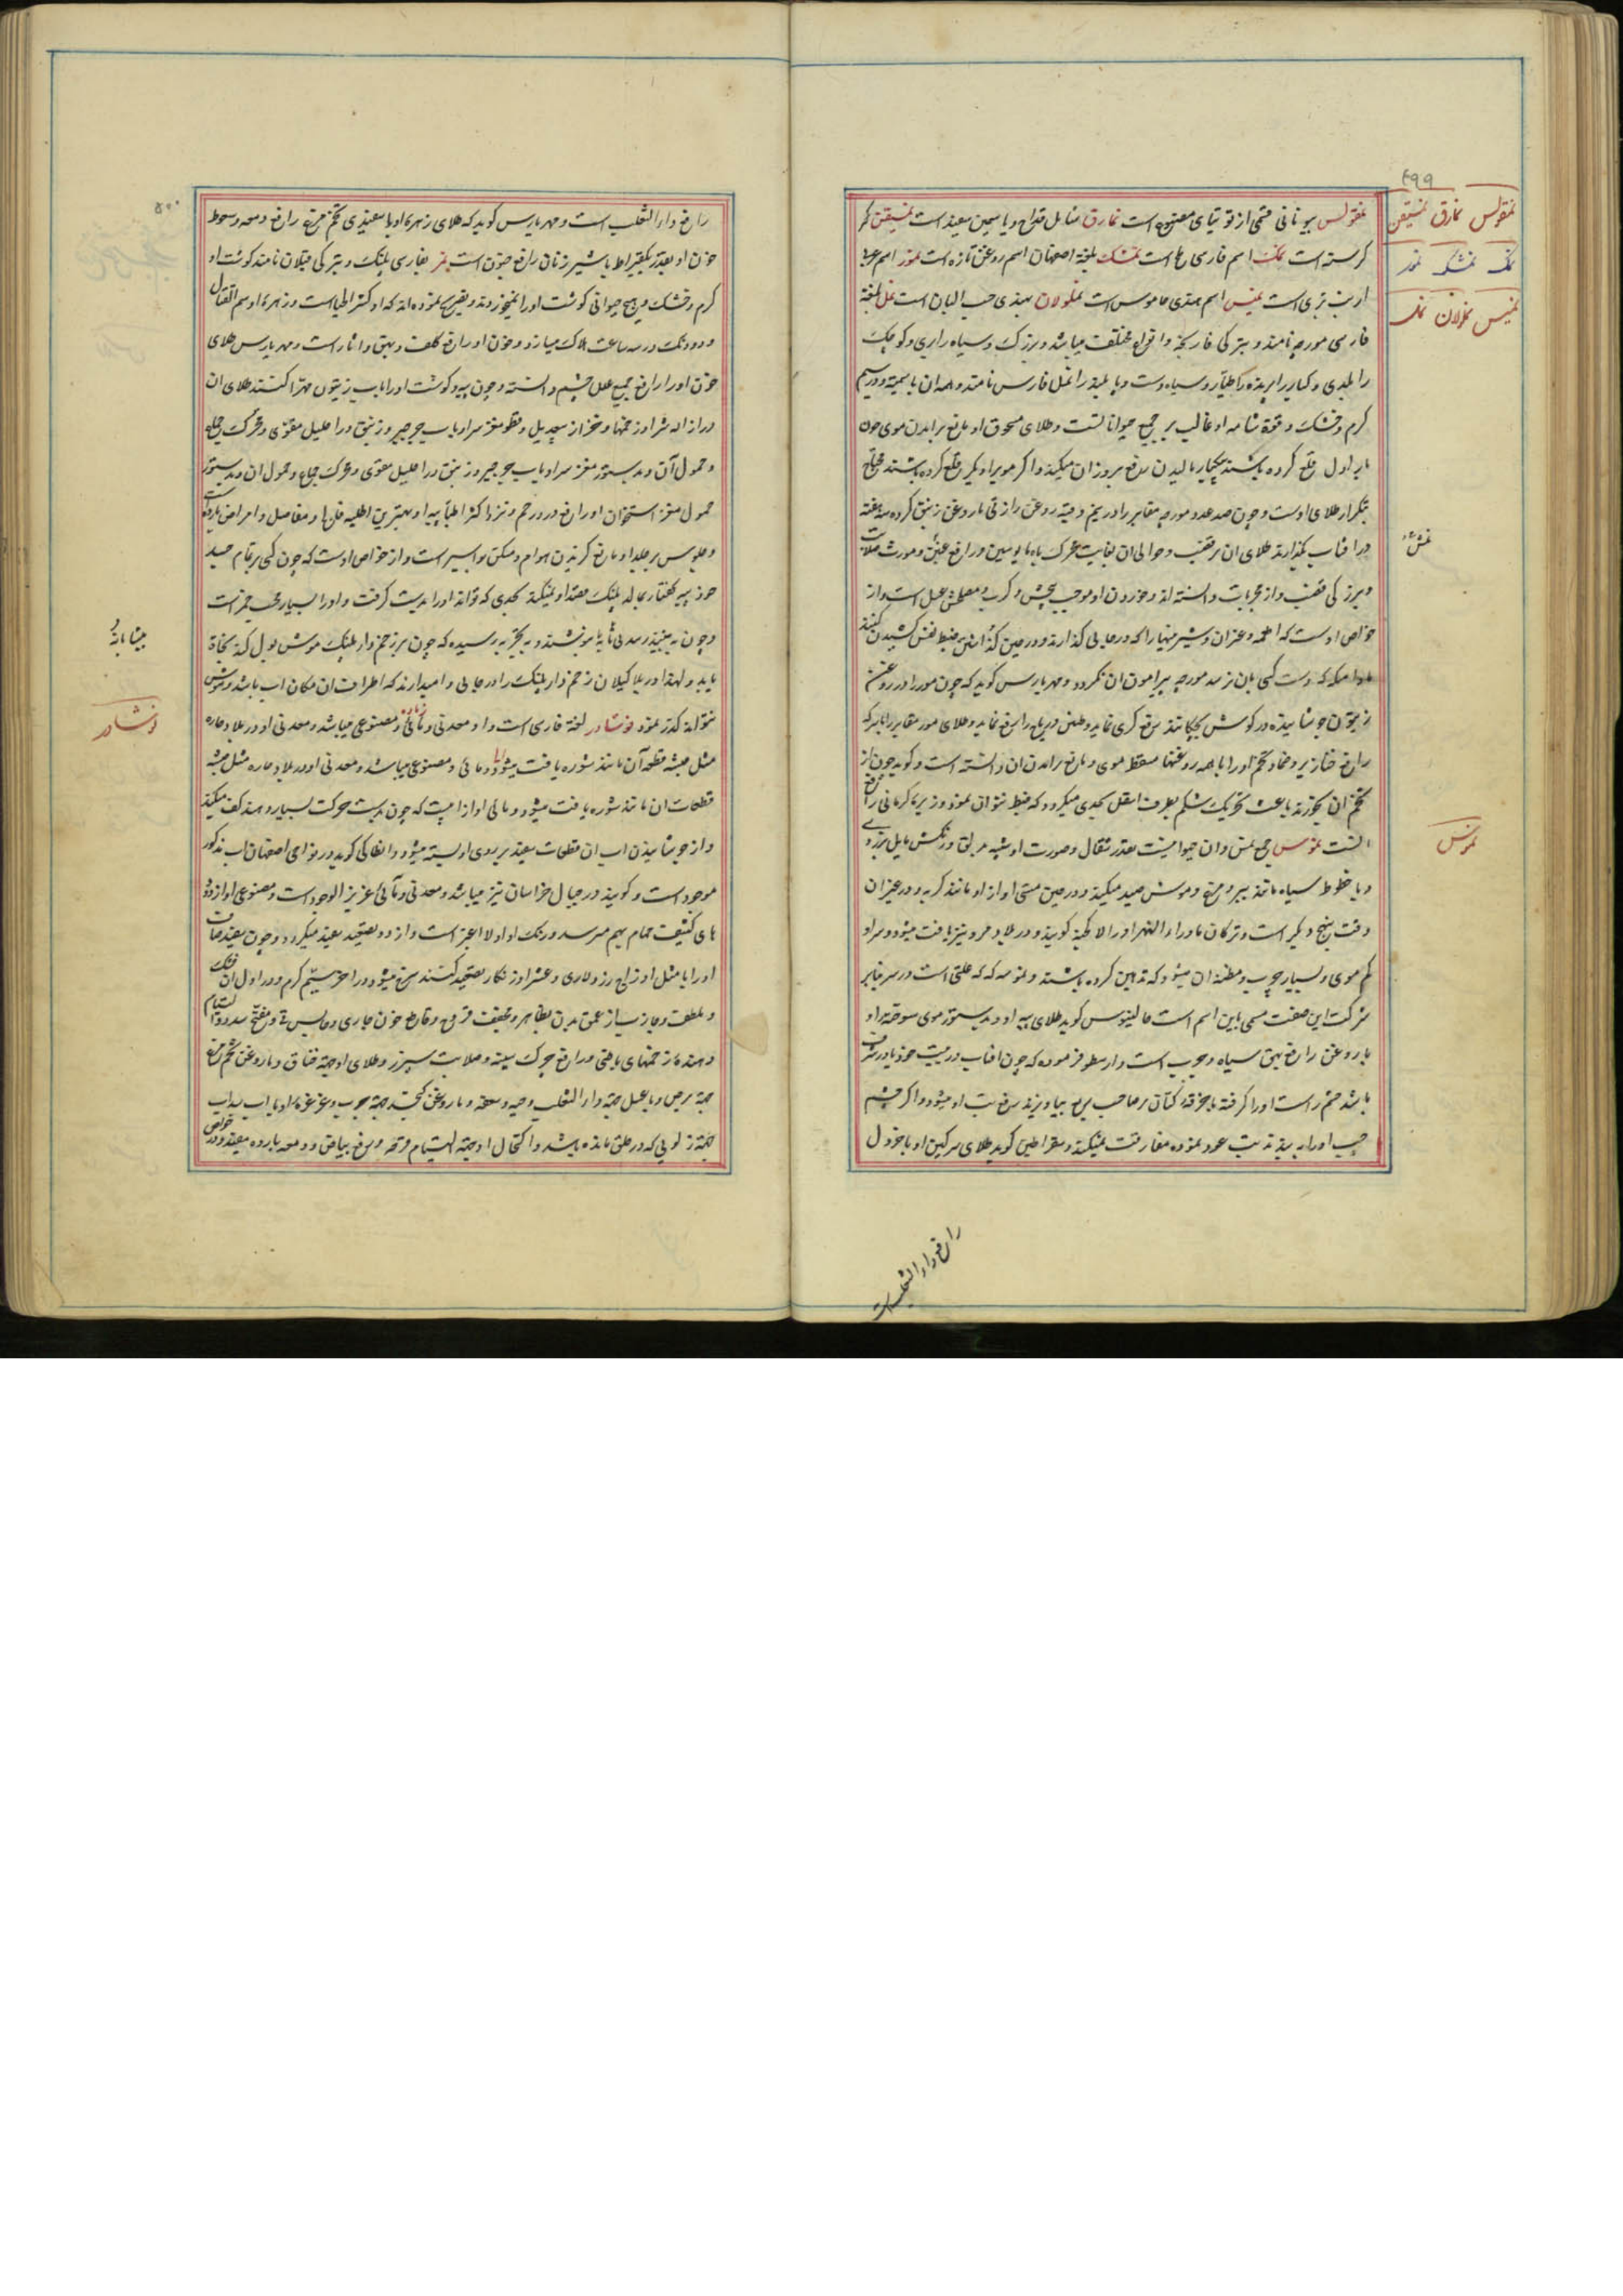 ۴۹۹
نمقولس نمارق نمسیقن
نمک نمشک نمر
نمس نملولان نمل
نمقولس بیونانی قسمی از توتیای مصنوع است نمارق شامل قداح و یاسمین سفید است نمسیقن
کرسنه است نمک اسم فارسی ملح است نمشک بلغة اصفهان اسم روغن تازه است نمر اسم عربی
ارنب بری است نمس اسم هندی جاموس است نملولان بهندی حب البان است نمل بلغة
فارسی مورچه نامند و بترکی قارنجه و اقسام او مختلف میباشد و بزرک و سیاه را و کوچک
را و کبار پرنده را طیار و سیاه است و را نمل فارس نامند و همه آن با سمیة و در سیم
کرم و خشک و قوة شامه او غالب بر جمیع حیوانات است و طلای مسحوق او مانع برآمدن موی چون
بار اول قلع کرده باشند یکبار مالیدن رفع بروز آن میکند و اکر مویرا دیکر قلع کرده باشند محتاج
بتکرار طلای اوست و چون صد عدد مورچه مقابر را در نیم وقیه روغن رازقی یا روغن زنبق کرده سه هفته
در آفتاب بکذارند طلای آن بر قضیب و حوالی آن بغایت محرک باه مایوسین و رافع عنن و مورث صلابت
و بزرکی قضیب و از مجربات دانسته اند و خوردن او موجب پیچش و کرب و معطش عسل است و از
خواص اوست که اطعمه و عذران و شیرینیها را که در جایی کذارند و در حین کذاشتن ضبط نفس کشیدن کنند
مادامیکه دست کسی بآن نرسد مورچه پیرامون آن نکردد و مهریارس کوید که چون مور را در روغن
زیتون جوشانیده در کوش بچکانند رفع کری نماید و طنین و ریاح را رفع نماید و طلای مور مقابر را با سرکه
رافع خنازیر و ضماد تخم او را با همه روغنها مسقط موی و مانع برآمدن آن دانسته است و کویند چون از
تخم آن بخورند باعث تحریک شکم بطرف اسفل بحدی میکردد که ضبط نتوان نمود و زیره کرمانی رافع
آنست نموس جمع نمس و آن حیوانیست بقدر شغال و صورت او شبیه مرباق و رنکش مایل بزردی
و با خطوط سیاه مانند ببر و مرغ و موش صید میکند و در حین مستی آواز او مانند کربه و در غیر آن
وقت بنهج دیکر است و ترکان ماوراء النهر او را کویند و در بلاد مرو نیز یافت میشود و سر او
کم موی و بسیار چرب و مظنه آن میشود که تدهین کرده باشند و نموسه که علتی است در سر بنابر
شرکت این صفت مسمی باین اسم است جالینوس کوید طلای پیه او و بدستور موی سوخته او
با روغن رافع بهق سیاه و مجرب است و ارسطو فرموده که چون آفتاب در بیت خود یا در شرف
باشد چشم راست او را کرفته با خرقه کتان بر صاحب ربع بیاویزند رفع تب او میشود و اکر چشم
چپ او را ببندند تب عود نموده مفارقت نمیکند و سقراطیس کوید طلای سرکین او با خردل
نمش
نموس
رافع داء الثعلب است
۵۰۰
رافع داء الثعلب است و مهریارس کوید که طلای زهره او با سفیدی تخم مرغ رافع دمعه و سعوط
خون او بقدر یکقیراط با شیر زنان رافع جنون است نمر بفارسی پلنک و بترکی قپلان نامند کوشت او
کرم و خشک و هیچ حیوانی کوشت او را نمیخورند و تصریح نموده اند که او کثر اطباست و زهره او سم القتال
و دو دانک در سه ساعت هلاک میسازد و خون او رافع کلف و بهق و آثار است و مهریارس طلای
خون او را رافع جمیع علل چشم دانسته و چون پیه و کوشت او را با آب زیتون مهرا کنند طلای آن
در ازاله شرا و زخمها و قطور مغز سر او با آب جرجیر و زنبق در احلیل مقوی و محرک جماع
و حمول آن و بدستور مغز سر او با آب جرجیر و زنبق در احلیل مقوی و محرک جماع و حمول آن و بدستور
حمول مغز استخوان او رافع درد رحم و نزد اکثر اطبا پیه او بهترین اطلیه فلج و مفاصل و امراض بارده است
و جلوس بر جلد او مانع کزیدن هوام و مسکن بواسیر است و از خواص اوست که چون کسی بر تمام جسد
خود پیه کفتار بمالد پلنک قصد او نمیکند بحدی که تواند او را بدست کرفت و او را بسیار محب خمر است
و چون به بیند رسد بی تابانه نوشند و بتجربه رسیده که چون بر زخم دار پلنک موش بول کند نجات
یابد و لهذا در بلاد کیلان زخم دار پلنک را در جایی وامیدارند که اطراف آن مکان آب باشد و موش
نتواند کذر نمود نوشادر لغة فارسی است و او معدنی و مائی و مصنوعی میباشد و معدنی او در بلاد حاره
مثل حبشه قطعه آن مانند شوره یافت میشود و مائی و مصنوعی میباشد و معدنی او در بلاد حاره مثل حبشه
قطعات آن مانند شوره یافت میشود و مائی او از آبیست که چون بدست حرکت بسیار دهند کف میکند
و از جوشانیدن آب آن قطعات سفید بر روی او بسته میشود و انطاکی کوید در نواحی اصفهان آب مذکور
موجود است و کویند در جبال خراسان نیز میباشد و معدنی و مائی عزیز الوجود است و مصنوعی او از دوده
های کثیف حمام بهم میرسد و رنک او اولا اغبر است و از دو تصعید سفید میکردد و چون سفید صاف
او را با مثل او زاج زرد و لاری و عشر او زنکار تصعید کنند سرخ میشود در آخر سیم کرم و در اول آن خشک
و ملطف و جاذب از عمق بدن بظاهر و مجفف قروح و قاطع خون جاری و حابس قی و مفتح سدد و التیام
دهنده زخمهای باطنی و رافع چرک سینه و صلابت سپرز و طلای او جهة خناق و با روغن تخم مرغ
جهة برص و با عسل جهة داء الثعلب و حیه و سعفه و با روغن کنجد جهة جرب و غرغره او با آب سداب
جهة زلویی که در حلق مانده باشد و اکتحال او جهة التیام قرحه و رفع بیاض و دمعه بارده مفید و در خواص
بیتابانه و
نوشادر